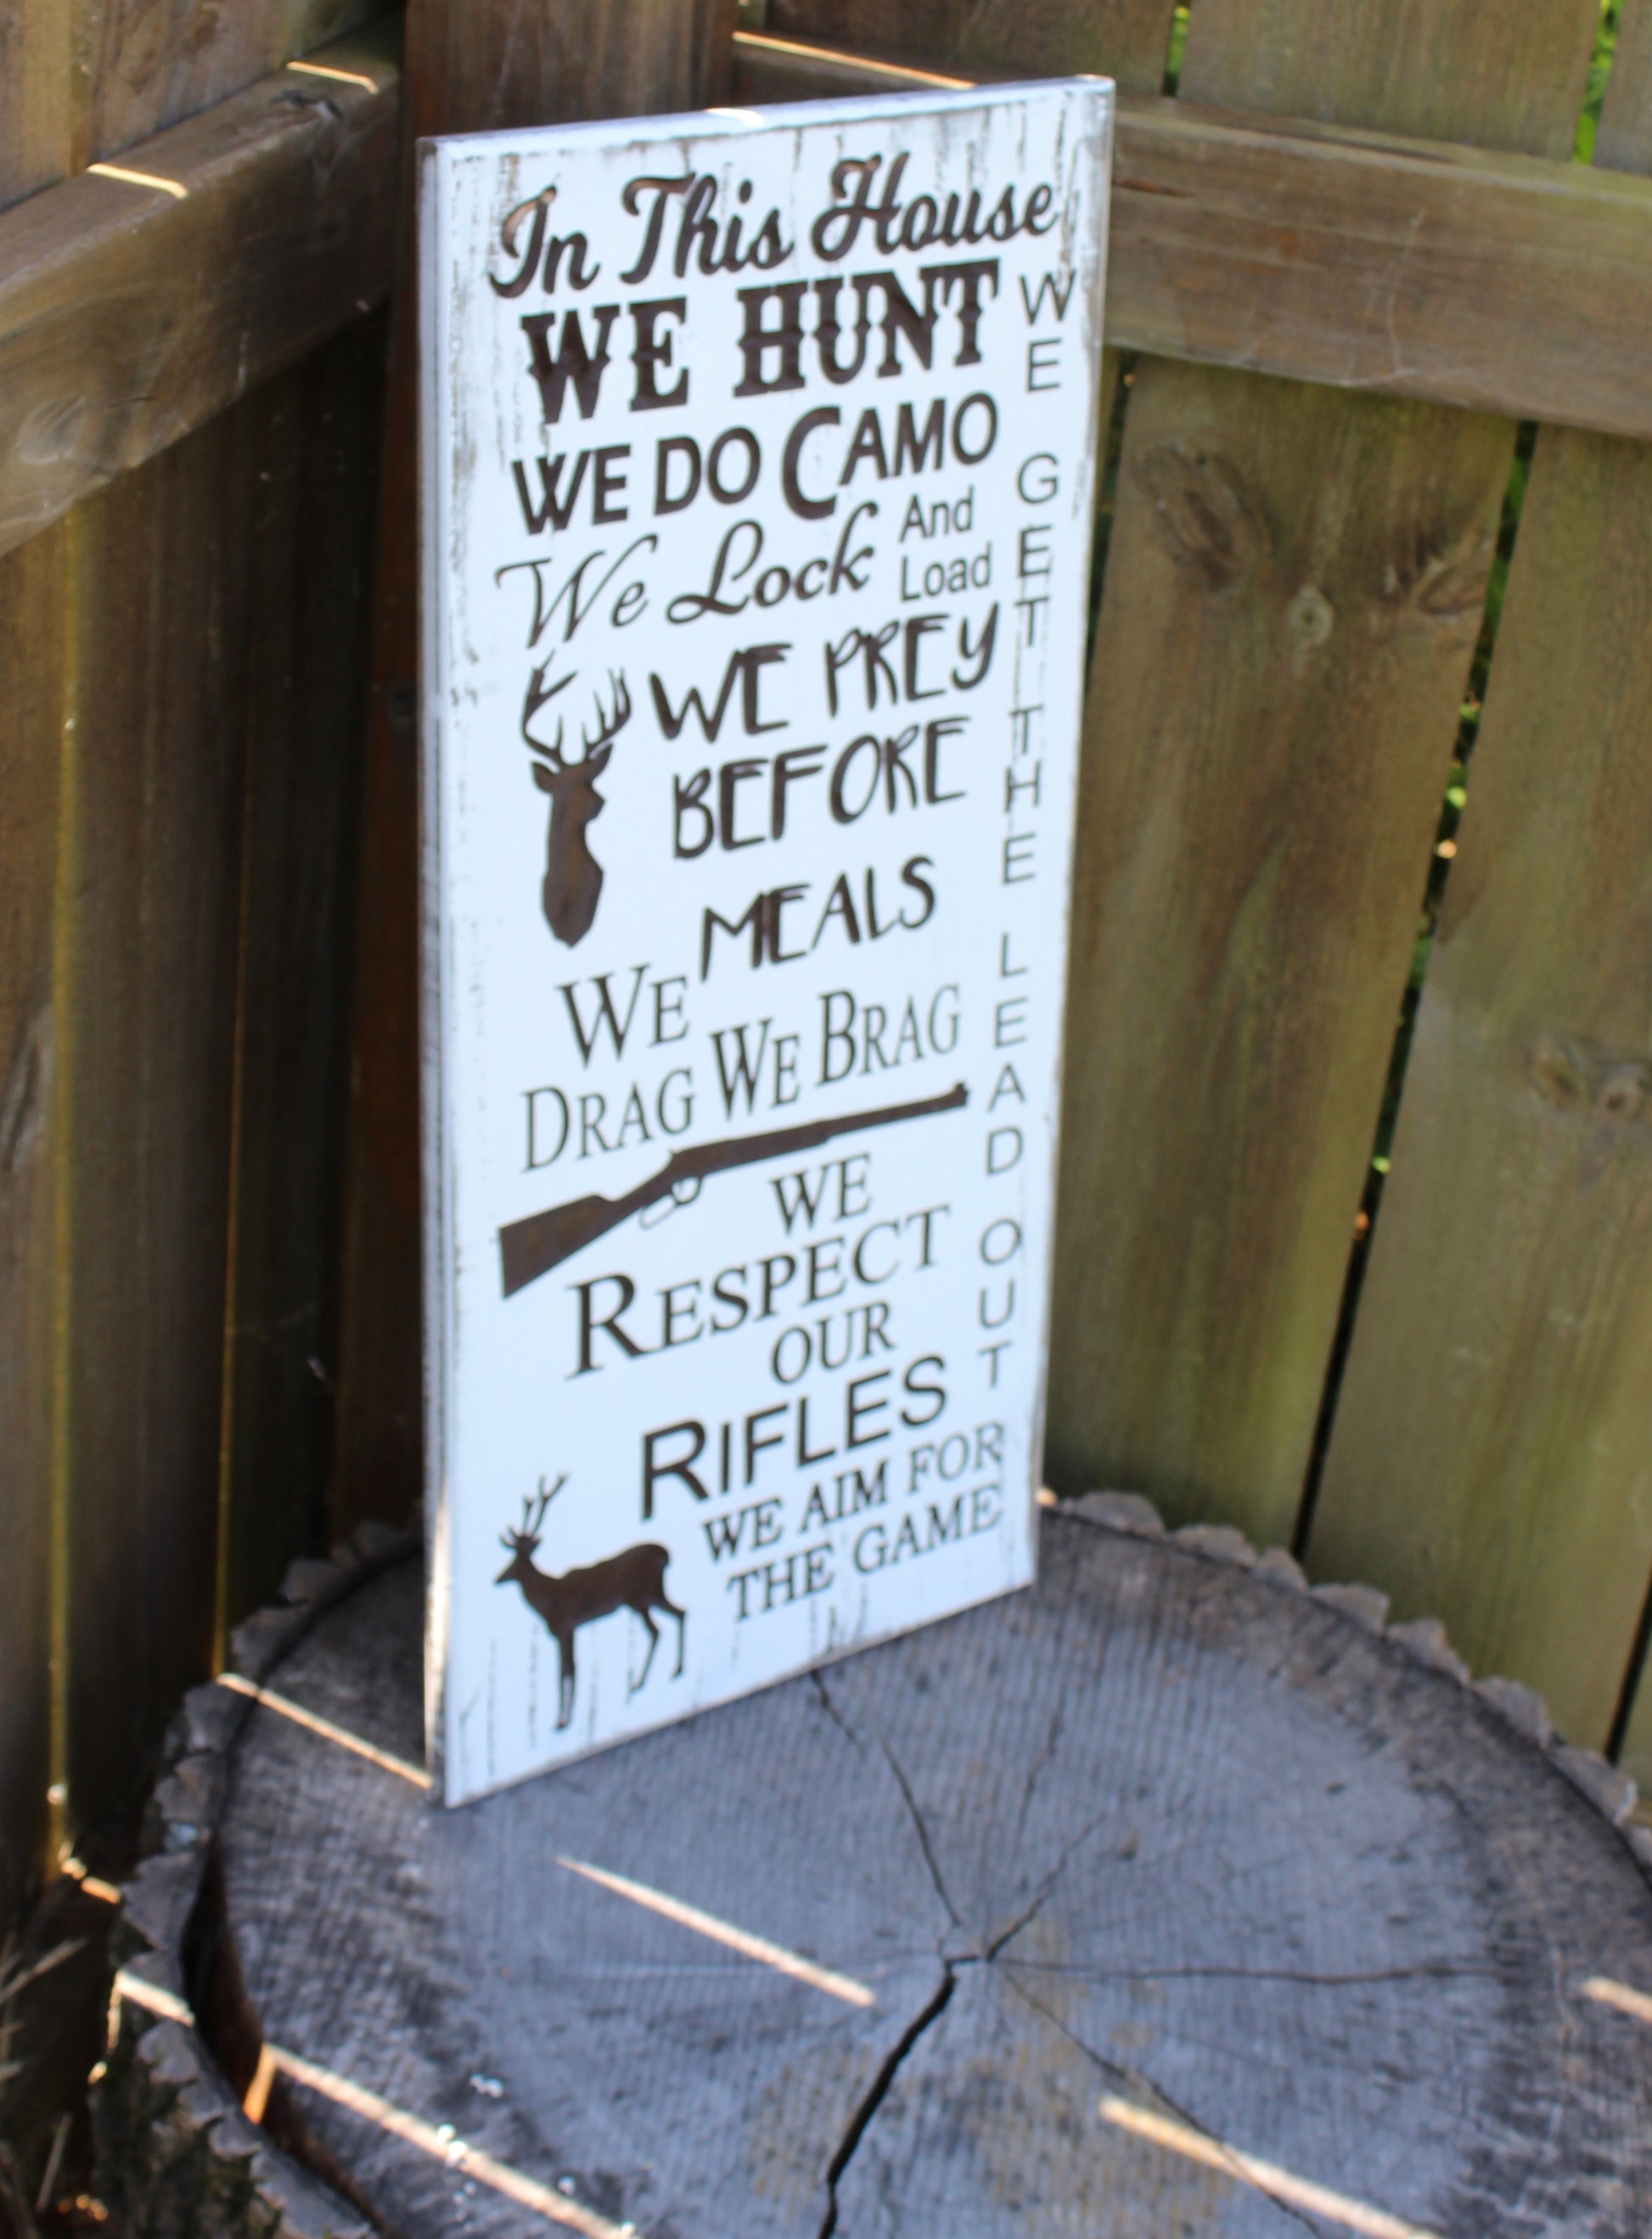 In This House
WE HUNT
WE DO CAMO
We Lock And
Load
WE PREY
BEFORE
MEALS
WE
DRAG WE BRAG
WE
RESPECT
OUR
RIFLES
WE AIM FOR
THE GAME
WE GET THE LEAD OUT